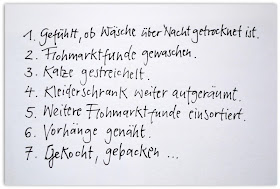 1. Gefühlt, ob Wäsche über Nacht getrocknet ist.
2. Flohmarktfunde gewaschen.
3. Katze gestreichelt.
4. Kleiderschrank weiter aufgeräumt.
5. Weitere Flohmarktfunde einsortiert.
6. Vorhänge genäht.
7. Gekocht, gebacken ...